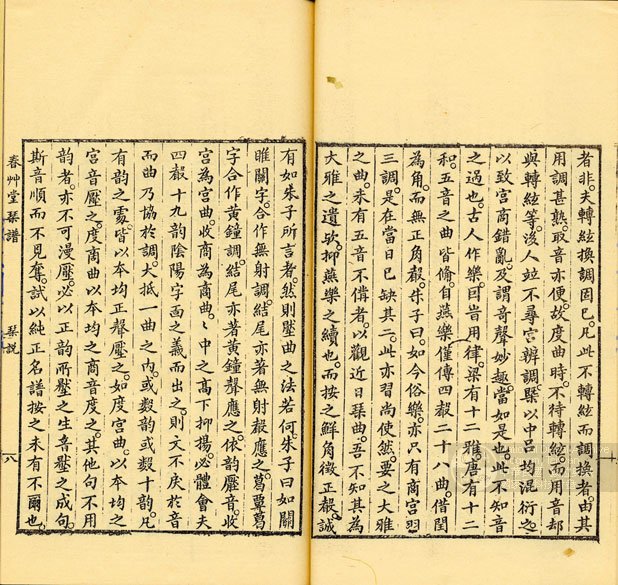 者非。夫轉絃換調固已。凡此不轉絃而調換者。由其
用調甚熟。取音亦便。故度曲時。不待轉絃。而用音却
與轉絃等。後人竝不尋宮辨調。槩以中呂均混衍之。
以致宮商錯亂。及謂奇聲妙趣。當如是也。此不知音
之過也。古人作樂。因皆用律。梁有十二雅。唐有十二
和。五音之曲皆備。自燕樂僅傳四聲二十八曲。借閏
為角。而無正角聲。朱子曰。如今俗樂。亦只有商宮羽
三調。是在當日已缺其二。此亦習尚使然。要之大雅
之曲。未有五音不備者。以觀近日琴曲。吾不知其為
大雅之遺歟。抑燕樂之續也。而按之鮮角徵正聲。誠
有如朱子所言者。然則壓曲之法若何。朱子曰如關
雎關字。合作無射調。結尾亦著無射聲應之。葛覃葛
字合作黃鐘調。結尾亦著黃鐘聲應之。依韵壓音。收
宮為宮曲。收商為商曲。曲中之高下抑揚。必體會夫
四聲十九韵陰陽字面之義而出之。則文不戾於音
而曲乃協於調。大抵一曲之內。或數韵或數十韵。凡
有韵之處。皆以本均正聲壓之。如度宮曲。以本均之
宮音壓之。度商曲以本均之商音度之。其他句不用
韵者。亦不可漫壓。必以正韵所壓之生音壓之成句。
斯音順而不見奪。試以純正名譜按之。未有不爾也。
春艸堂琴譜
琴說
八